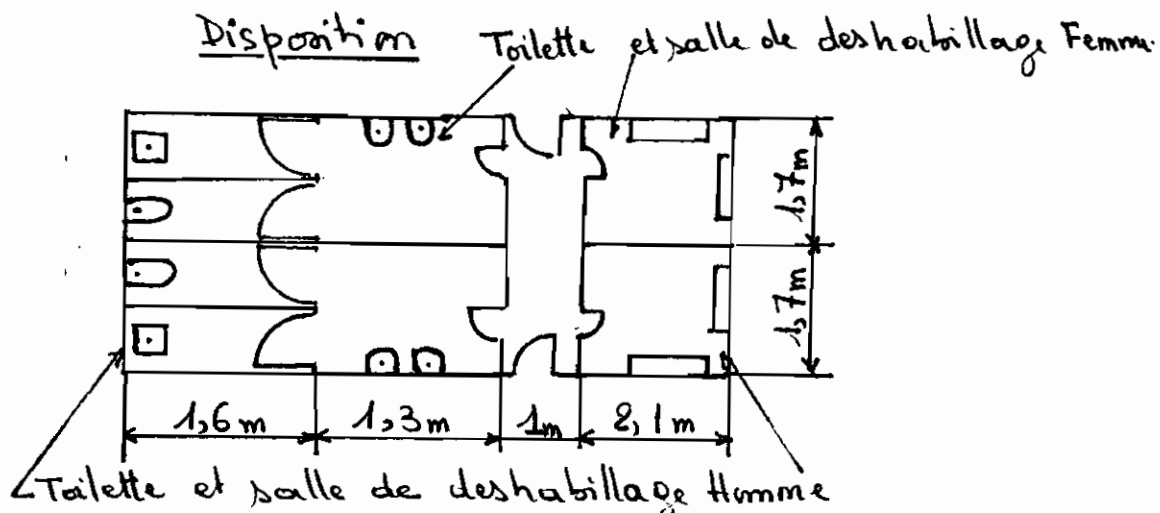 Disposition
Toilette et salle de deshabillage Femme.
1,7m
1,7m
1,6m 1,3m 1m 2,1m
Toilette et salle de deshabillage Homme